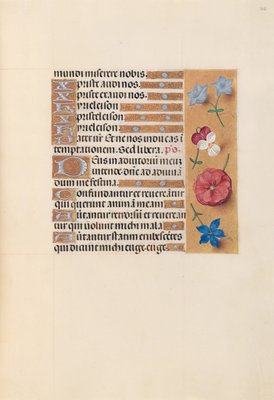 mundi miserere nobis.
Xpriste audi nos.
Xpriste exaudi nos.
Kyrieleison
Xprieleison
Kyrieleison
Pater nr̄ Et ne nos inducas ī
temptationem. Sed libera. p̄s.
Deus in adiutoriū meū
intende. dn̄e ad adiuuā
dum me festina.
Confundantur et reuereātur
qui querunt animā meam
Auertantur retrorsū et erubescāt
tur qui uolunt michi mala
Auertantur statim erubescētes
qui dicunt michi euge euge.